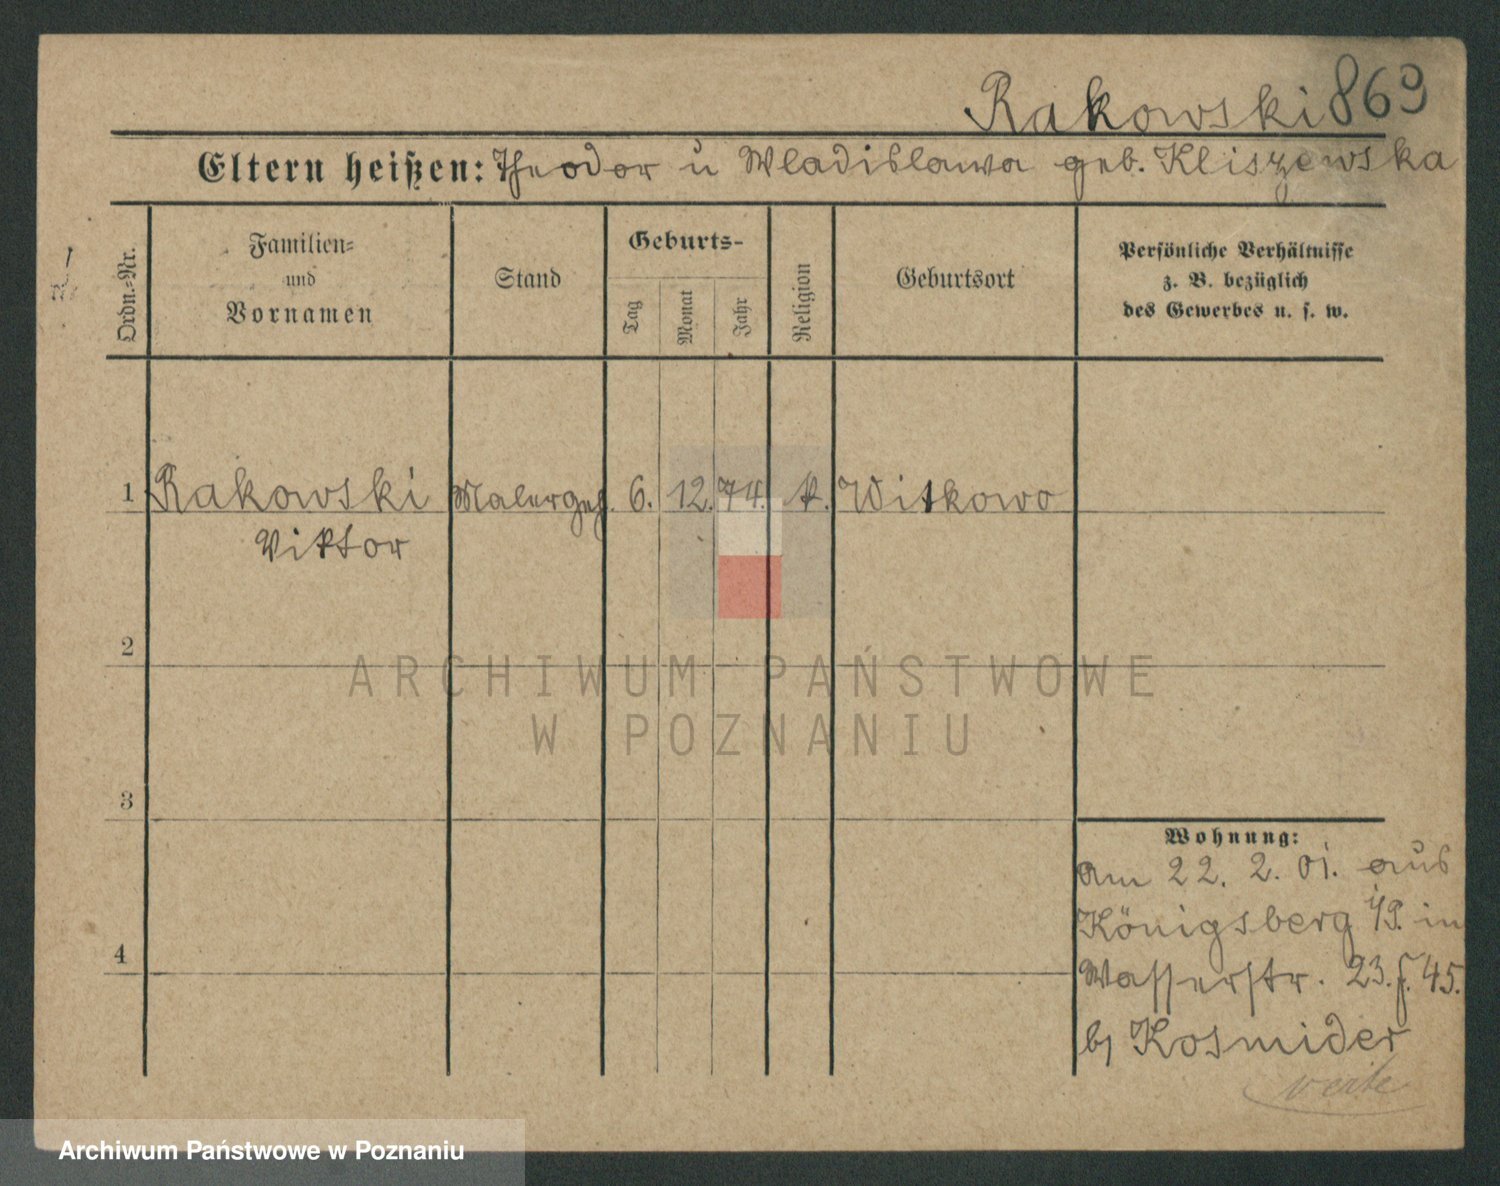 Rakowski 869
Eltern heißen: Theodor u Wladislawa geb. Kliszewska
Ordn.-Nr.
Familien-
und
Vornamen
Stand
Geburts-
Tag
Monat
Jahr
Religion
Geburtsort
Persönliche Verhältnisse
z. B. bezüglich
des Gewerbes u. s. w.
1 Rakowski Malergeh. 6. 12. 74. k. Witkowo
Viktor
2
ARCHIWUM PAŃSTWOWE
W POZNANIU
3
4
Wohnung:
am 22. 2. 01. aus
Königsberg in
Wasserstr. 23. f. 45.
bj Kosmider
verte
Archiwum Państwowe w Poznaniu